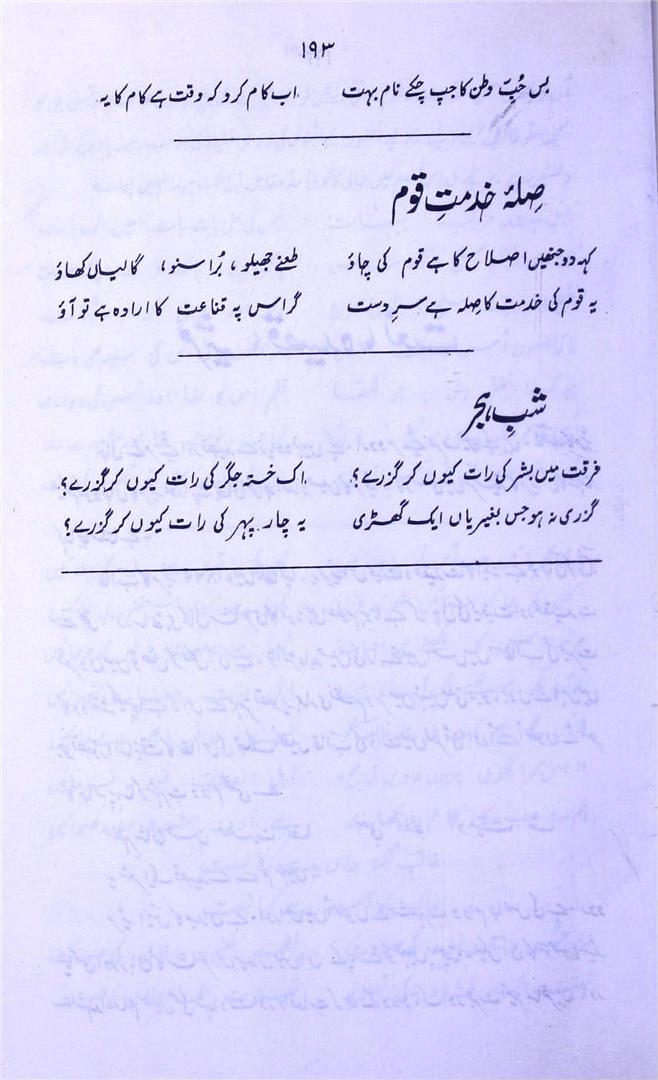 ۱۹۳
بس حُبِّ وطن کا جپ چکے نام بہت اب کام کرو کہ وقت ہے کام کا یہ
صِلۂ خدمتِ قوم
کہہ دو جنھیں اصلاح کا ہے قوم کی چاؤ طعنے جھیلو، بُرا سنو، گالیاں کھاؤ
یہ قوم کی خدمت کا صِلہ ہے سرِ دست گر اس پہ قناعت کا ارادہ ہے تو آؤ
شبِ ہجر
فرقت میں بشر کی رات کیوں کر گزرے؟ اک خستہ جگر کی رات کیوں کر گزرے؟
گزری نہ ہو جس بغیر یاں ایک گھڑی یہ چار پہر کی رات کیوں کر گزرے؟